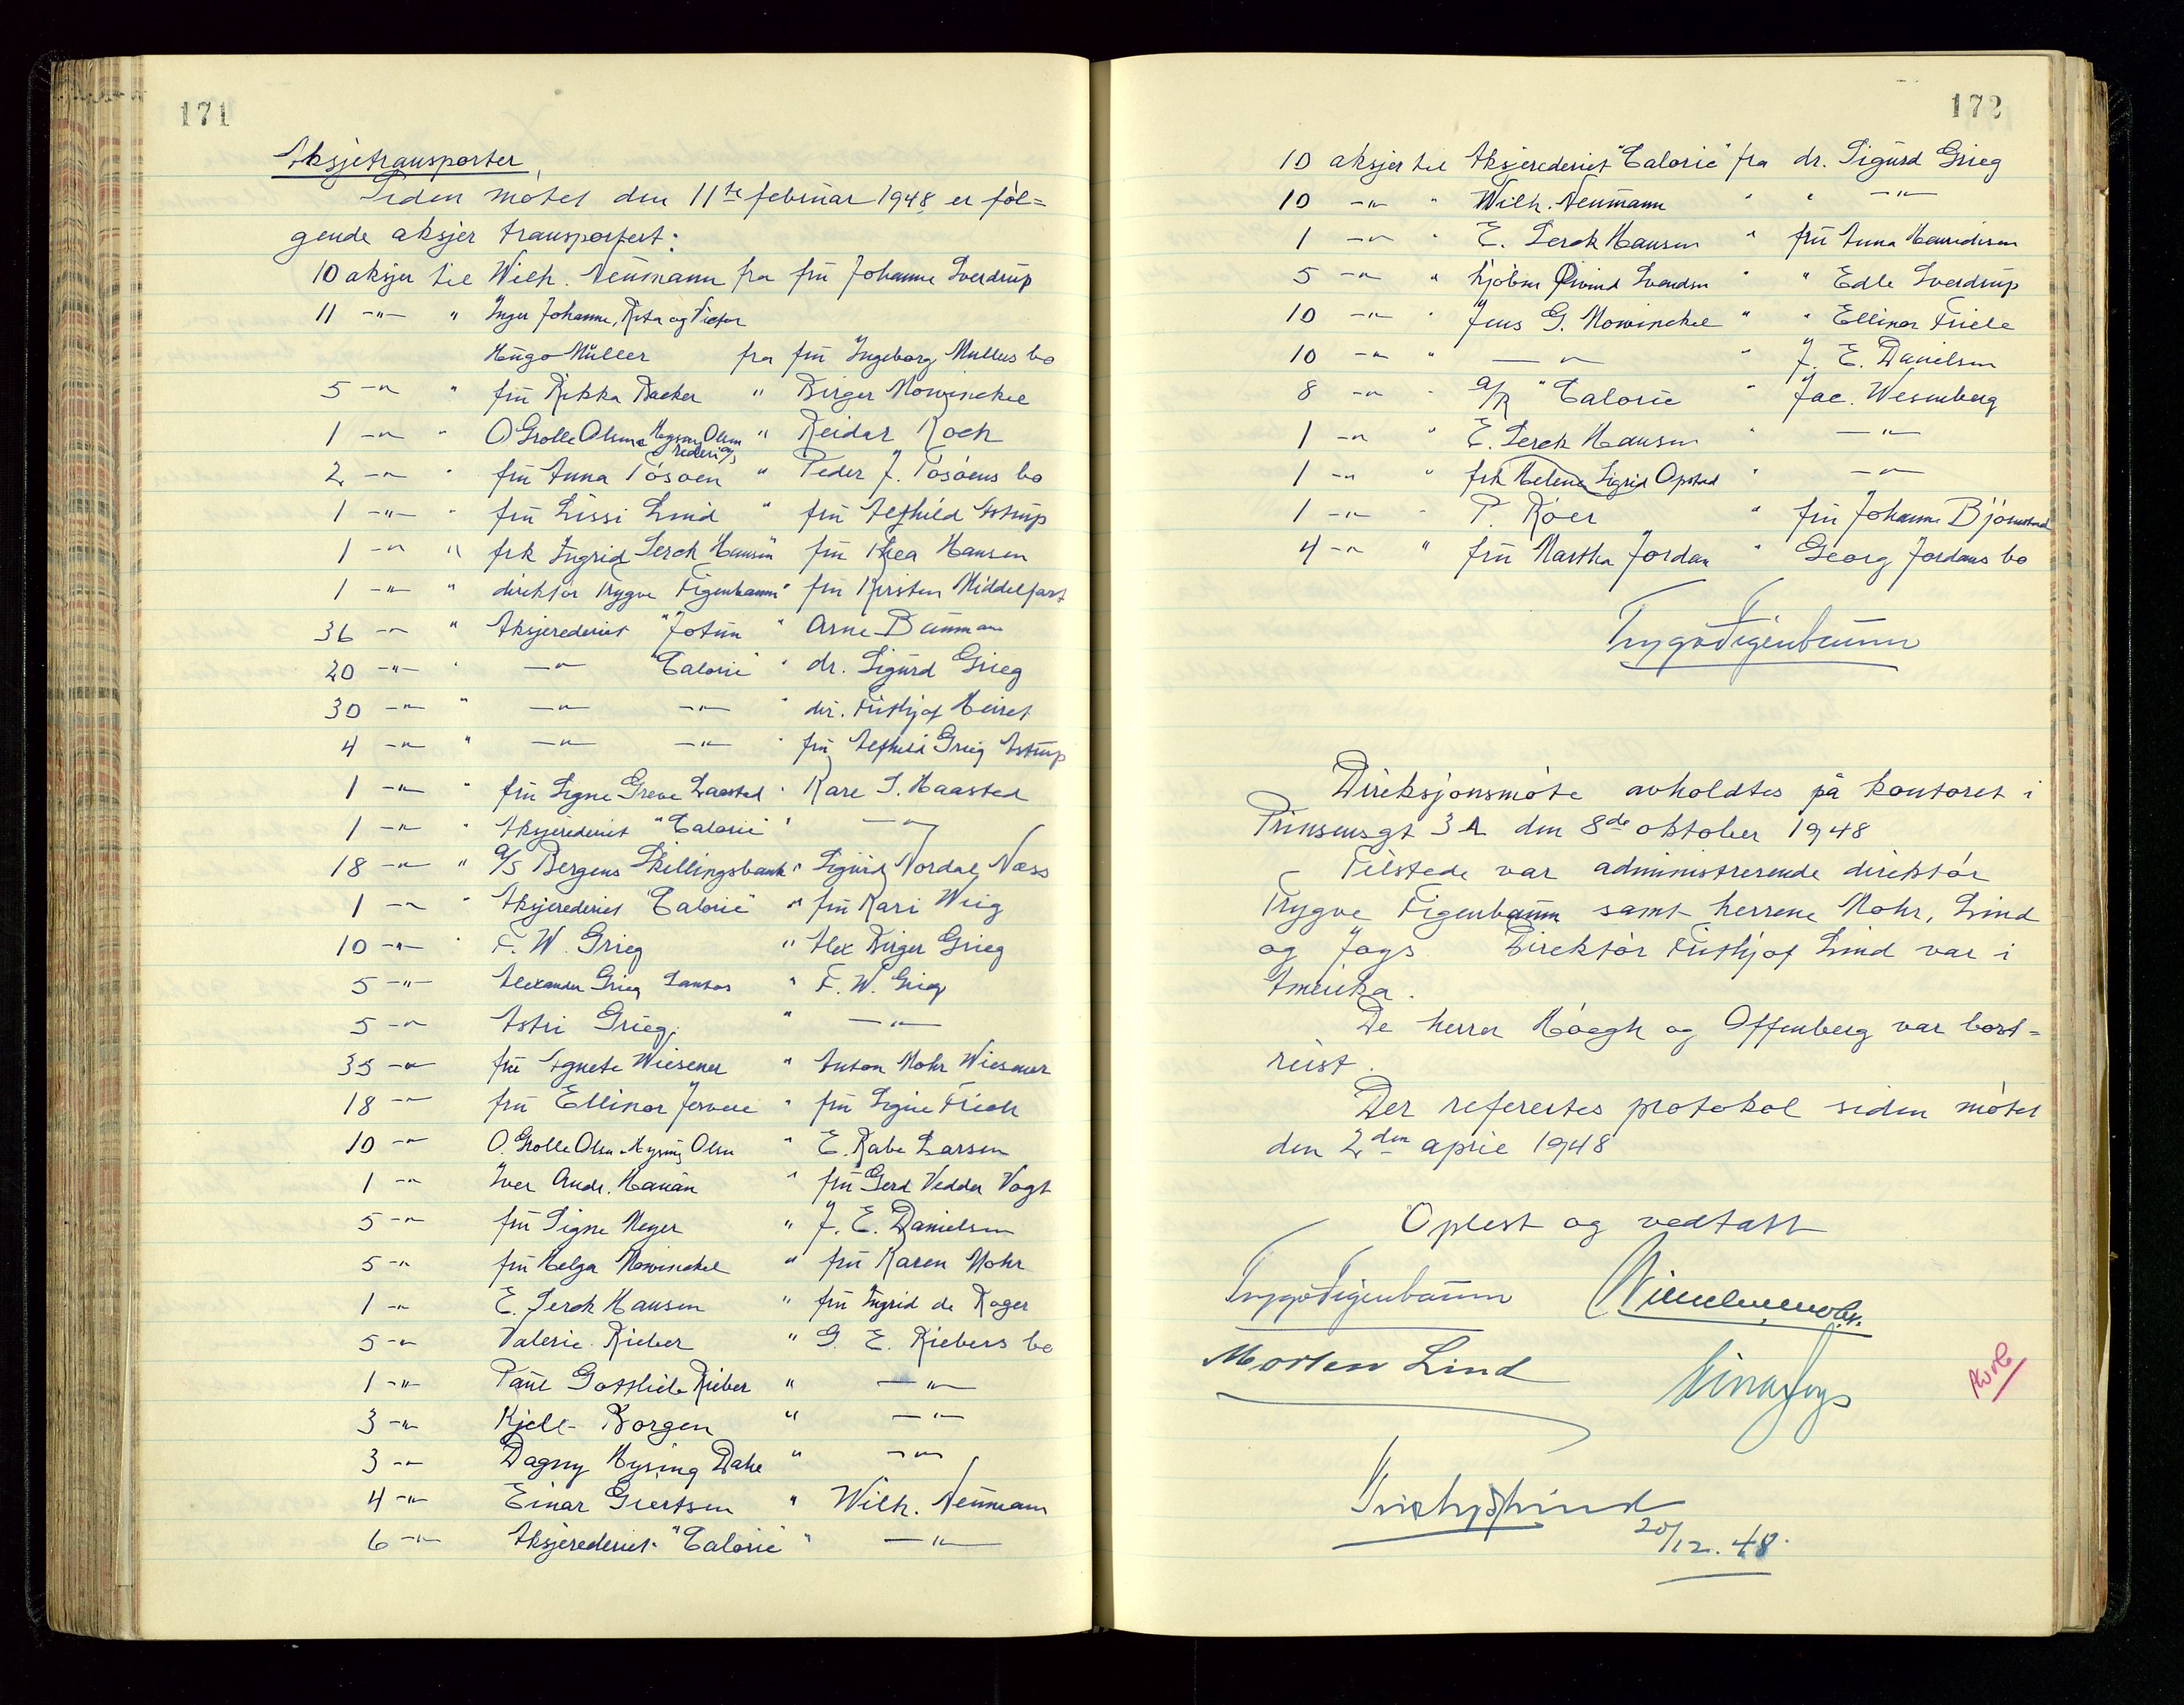 171
Aksjetransporter
Siden møtet den 11te februar 1948 er føl=
gende aksjer transportert:
10 aksjer til Wilh. Neumann fra fru Johanne Sverdrup
11 -"- " Inger Johanne, Rita og Victor
Hugo Müller fra fru Ingeborg Mullers bo
5 -"- " fru Rikka Backer " Birger Mowinckel
1 -"- " O Grolle Olsen Hysing Olsen " Reidar Koch
rederi a/s
2 -"- " fru Anna Tosøen " Peder J. Tosøens bo
1 -"- " fru Lissi Lind " fru Alfhild Astrup
1 -"- " frk Ingrid Lerch Hansen " fru Thea Hansen
1 -"- " direktør Trygve Figenbaum " fru Kirsten Middelfart
36 -"- " Aksjerederiet "Jotun" " Arne Baumann
20 -"- " -"- "Caloric" " dr. Sigurd Grieg
30 -"- " -"- -"- " dir. Frithjof Heiret
4 -"- " -"- -"- " fru Alfhild Grieg Astrup
1 -"- " fru Signe Greve Laasted " Kare S. Haasted
1 -"- " Aksjerederiet "Caloric" " -"-
18 -"- " A/S Bergens Skillingsbank " Sigurd Nordal Næss
1 -"- " Aksjerederiet "Caloric" " fru Kari Wiig
10 -"- " F. W. Grieg " Alex Birger Grieg
5 -"- Alexander Grieg Santos " F. W. Grieg
5 -"- Astri Grieg. " -"-
35 -"- fru Agnete Wiesener " Anton Mohr Wiesener
18 -"- fru Ellinor Jervell " fru Signe Friele
10 -"- O. Grolle Olsen Hysing Olsen " E. Rabe Larsen
1 -"- Iver Andr. Hauan " fru Gerd Vedder Vogt
5 -"- fru Signe Meyer " J. E. Danielsen
5 -"- fru Helga Mowinckel " fru Karen Mohr
1 -"- E. Lerch Hansen " fru Ingrid de Roger
5 -"- Valerie Rieber " G. E. Riebers bo
1 -"- Paul Gottlieb Rieber " -"-
3 -"- Kjell Borgen " -"-
3 -"- Dagny Hysing Dahl " -"-
4 -"- Einar Giertsen " Wilh. Neumann
6 -"- Aksjerederiet "Caloric" " -"-
172
10 aksjer til Aksjerederiet "Caloric" fra dr. Sigurd Grieg
10 -"- " Wilh. Neumann " " -"-
1 -"- " E. Lerch Hansen " fru Anna Henrichsen
5 -"- " Øivind Svendsen " " Edle Sverdrup
10 -"- " Jens G. Mowinckel " " Ellinor Friele
10 -"- " -"- " J. E. Danielsen
8 -"- " A/R "Caloric " Jac. Wesenberg
1 -"- " E. Lerch Hansen " -"-
1 -"- " frk Helene Sigrid Opstad " -"-
1 -"- " P. Röer " fru Johanne Bjørnstad
4 -"- " fru Martha Jordan " Georg Jordans bo
Trygve Figenbaum
Direksjonsmøte avholdtes på kontoret i
Prinsensgt 3 A den 8de oktober 1948
Tilstede var administrerende direktør
Trygve Figenbaum samt herrene Mohr, Lind
og Jays Direktør Frithjof Lind var i
Amerika.
De herrer Høegh og Offenberg var bort=
reist.
Der refereertes protokol siden møtet
den 2den april 1948
Oplest og vedtatt
Trygve Figenbaum
Morten Lind Einar Jays
Frithjof Lind
20/12. 48.